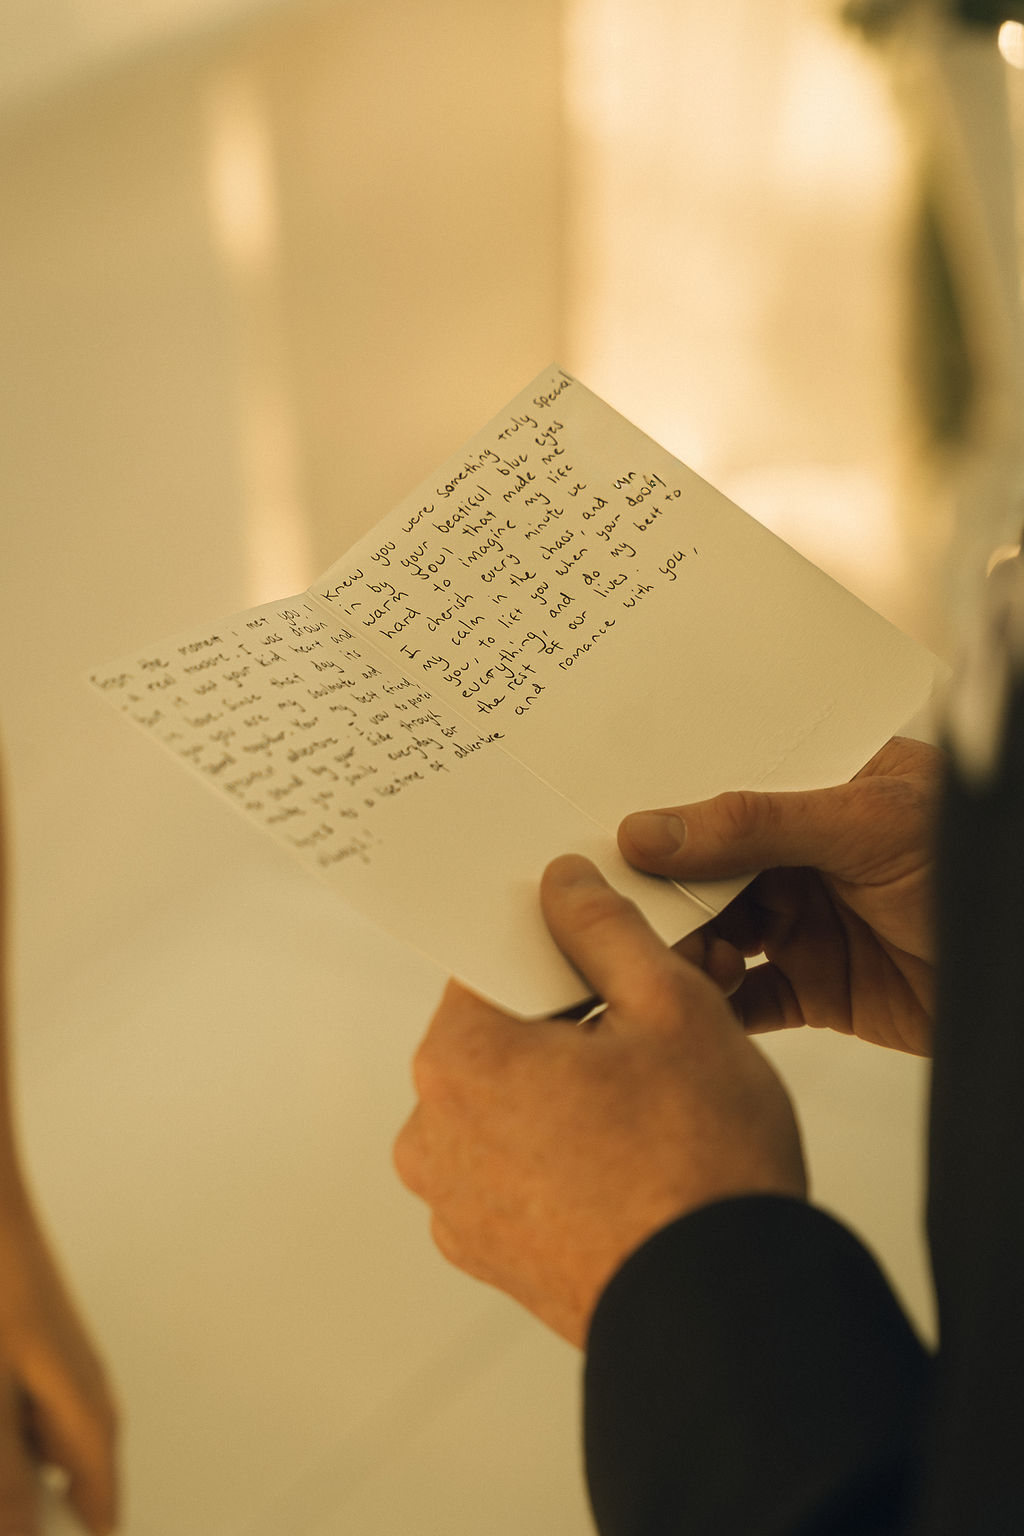 From the moment i met you, I Knew you were something truly special
a real treasure. I was drawn in by your beatiful blue eyes
but it was your kind heart and warm soul that made me
in love. Since that day its hard to imagine my life
you are my soulmate and I cherish every minute we
together. Your my best friend, my calm in the chaos, and
adventure. I vow to you, to lift you when your down
stand by your side through everything, and do my best to
make you smile everyday for the rest of our lives.
to a lifetime of adventure and romance with you,